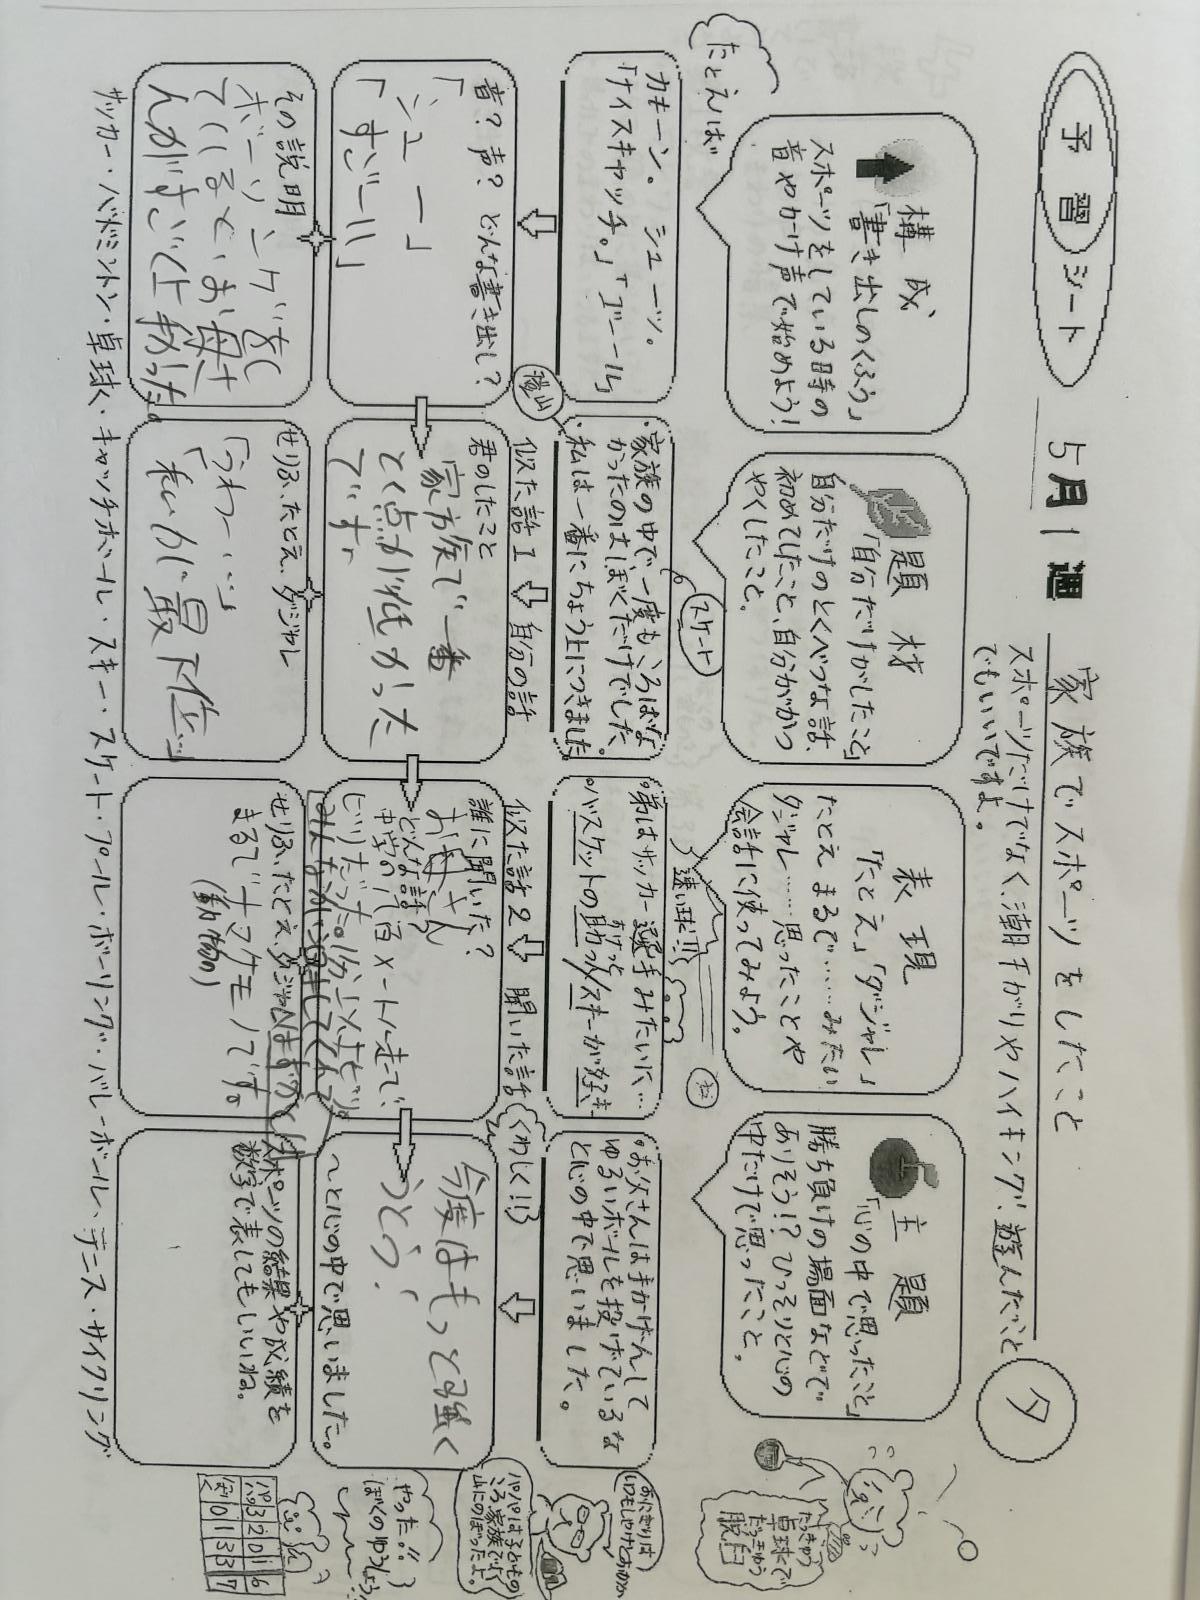 予習シート
5月1週
家族でスポーツをしたこと
スポーツだけでなく、潮干がりやハイキング、遊んだこと
でもいいですよ。
夕
構成
「書き出しのくふう」
スポーツをしている時の
音やかけ声で始めよう!
題材
「自分だけがしたこと」
自分だけのとくべつな話、
初めてしたこと、自分がかつ
やくしたこと。
表現
「たとえ」「ダジャレ」
たとえ まるで……みたい
ダジャレ……思ったことや
会話に使ってみよう。
主題
「心の中で思ったこと」
勝ち負けの場面などで
ありそう!? ひっそりと心の
中だけで思ったこと。
たとえば
スケート
速い球!!
カキーン。シューッ。
「ナイスキャッチ。」「ゴール」
・家族の中で一度もころばな
かったのはぼくだけでした。
・私は一番にちょう上につきました。
登山
。弟はサッカー選手みたいに…
。バスケットの助っ人/スキーが好き
。お父さんは手かげんして
ゆるいボールを投げているな
と心の中で思いました。
音? 声? どんな書き出し?
「シューー」
「すごーい」
似た話1 自分の話
君のしたこと
家族で一番
とく点が低かった
です。
似た話2 聞いた話
くわしく!!
誰に聞いた?
お母さん
どんな話?
中学の時百メートル走で、
びりだった。
今度はもっと強く
うとう!
〜と心の中で思いました。
その説明
ボーリングをし
ているとお母さ
んがすごく上手かった。
せりふ、たとえ、ダジャレ
「うわー…」
「私いがい最下位…」
せりふ、たとえ、ダジャレ
まるでナマケモノです。
(動物の)
スポーツの結果や成績を
数字で表してもいいね。
サッカー・バドミントン・卓球・キャッチボール・スキー・スケート・プール・ボーリング・バレーボール、テニス・サイクリング
たっきゅう
卓球で
だっきゅう
脱臼
パパは子どもの
ころ、家族でよく
山にのぼったよ。
やった!!
ぼくのゆうしょう!
パパ 3 2 0 1 6
ぼく 0 1 3 3 7